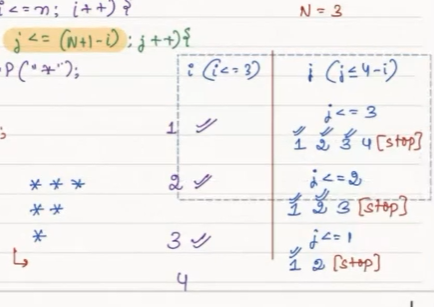 i<=n; i++){
N = 3
j <= (N+1-i); j++){
P("*");
i (i<=3)
j (j≤4-i)
;
j <= 3
1
1 2 3 4 [stop]
j <= 2
2
1 2 3 [stop]
* * *
* *
*
j <= 1
3
1 2 [stop]
4